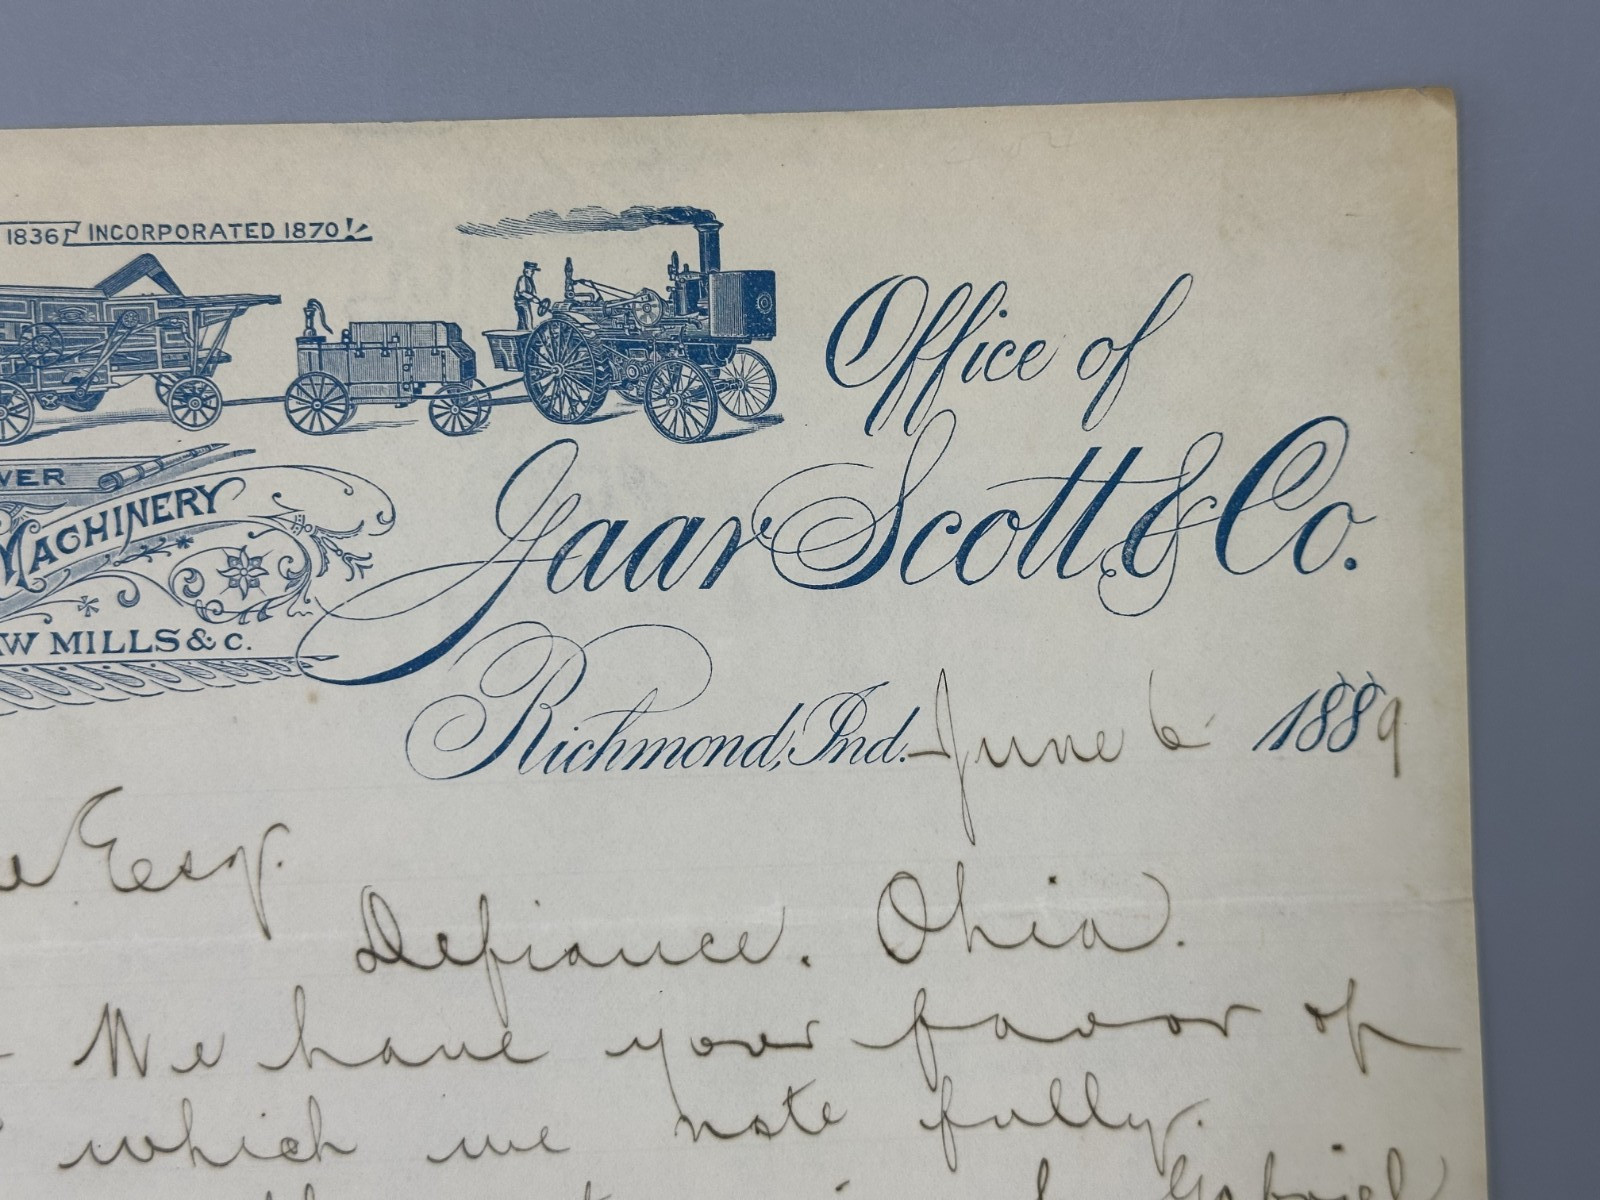 1836 INCORPORATED 1870
Office of
Gaar Scott & Co.
MACHINERY
MILLS & C.
Richmond, Ind. June 6 1889
Esq.
Defiance. Ohio.
We have your favor of
which we note fully.
Gabriel